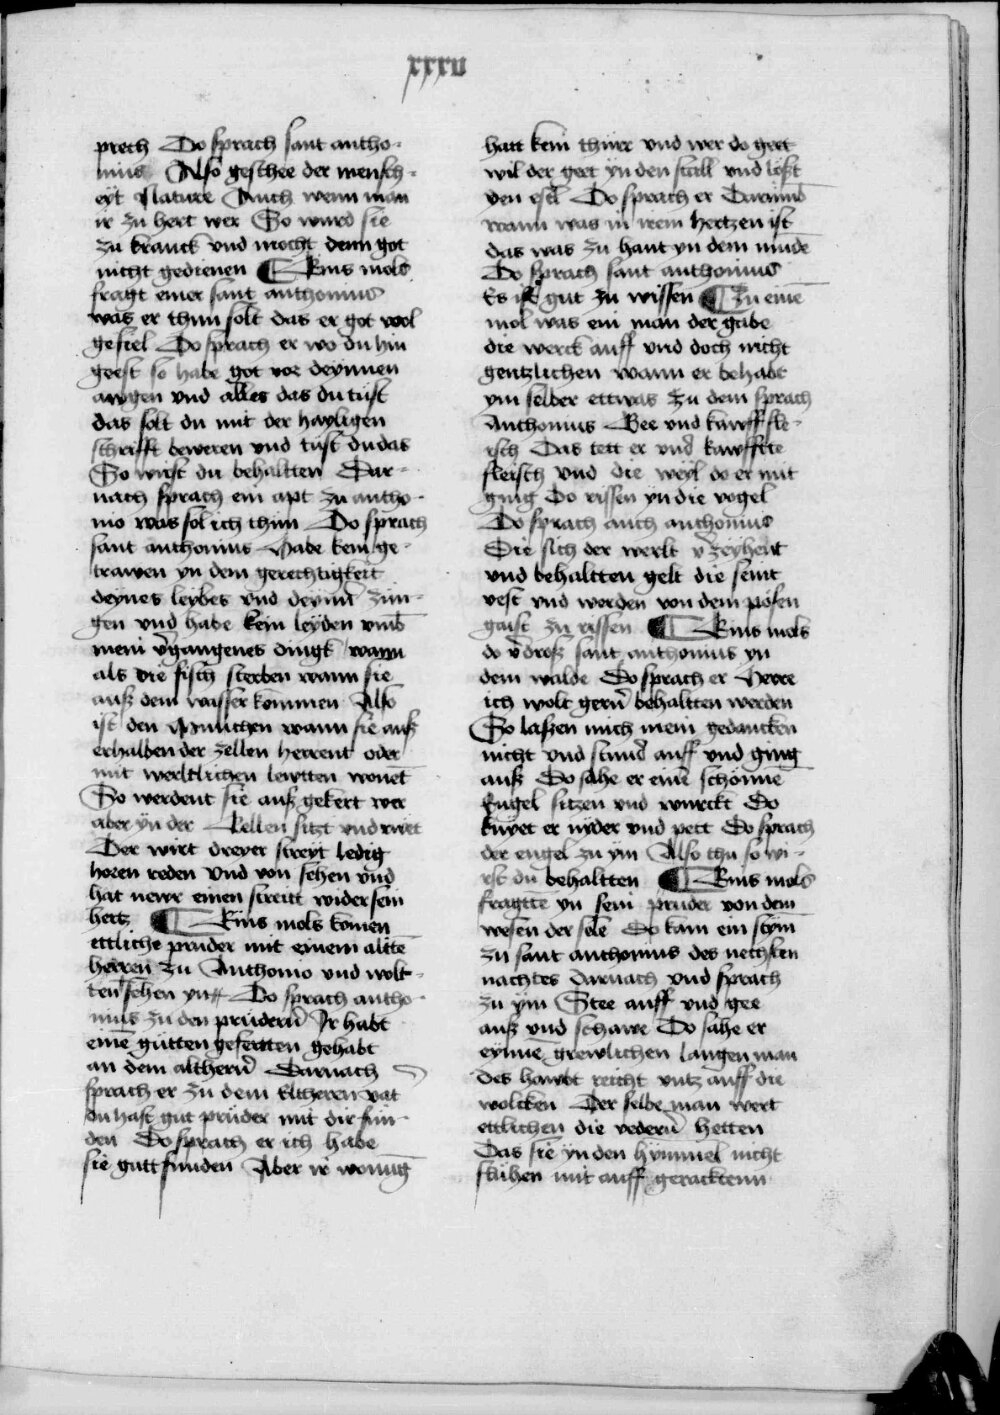 xxxv
prech Do sprach sant antho-
nius Also geschee der mensch-
eyt Nature Auch wenn man
ir zu hert wer So wurd sie
zu kranck vnd mocht denn got
nicht gedienen Eins mols
fragt einer sant anthonius
was er thun solt das er got wol
gefiel Do sprach er wo du hin
geest so habe got vor deynnen
awgen vnd alles das du tust
das solt du mit der hayligen
schrifft beweren vnd tust du das
So wirst du behaltten Dar-
nach sprach ein apt zu antho-
nio was sol ich thun Do sprach
sant anthonius Habe kein ge-
trawen yn dem gerechtigkeit
deynes leybes vnd deyner zun-
gen vnd habe kein leyden vmb
mein vergangenes dingk wann
als die fisch sterben wann sie
auß dem wasser kommen Also
ist den Munichen wann sie auß
erhalben der zellen herrent oder
mit werltlichen lewtten wonet
So werdent sie auß gekert wer
aber yn der Zellen sitzt vnd rwet
Der wirt dreyer streyt ledig
horen reden vnd von sehen vnd
hat newr einen streitt wider sein
hertz Eins mols komen
ettliche pruder mit einem altten
herren zu Anthonio vnd wolt-
ten sehen yn Do sprach antho-
nius zu den prudern Ir habt
einen gutten geferten gehabt
an dem altherrn Darnach
sprach er zu dem Eltheren vat
du hast gut pruder mit dir fun-
den Do sprach er ich habe
sie gutt funden Aber ir wonung
hatt kein thurr vnd wer do geet
wil der geet yn den stall vnd lost
den esel Do sprach er Darumb
wann was in irem hertzen ist
das was zu hant yn dem munde
Do sprach sant anthonius
Es ist gut zu wissen Zu einem
mol was ein man der gabe
die werck auff vnd doch nicht
gentzlichen wann er behabt
ym selber ettwas Zu dem sprach
Anthonius Gee vnd kawff fle-
isch Das tett er vnd kawffte
fleisch vnd die weyl do er mit
ging Do rissen yn die vogel
Do sprach auch anthonius
Die sich der werlt verzeyhent
vnd behaltten gelt die seint
vest vnd werden von dem posen
gaist zu rissen Eins mols
do verdroß sant anthonius yn
dem walde Do sprach er Herre
ich wolt gern behaltten werden
So laßen mich mein gedancken
nicht vnd stund auff vnd ging
auß Do sahe er einen schonne
Engel sitzen vnd wurckt Do
knyet er nyder vnd pett Do sprach
der engel zu ym Also thu so wi-
rst du behaltten Eins mols
fragtten yn sein pruder von dem
wesen der sele Do kam ein stym
zu sant anthonius des nechsten
nachtes Darnach vnd sprach
zu ym Stee auff vnd gee
auß vnd schawe Do sahe er
eynnen grewlichen langen man
des hawbt reicht vntz auff die
wolcken Der selbe man wert
ettlichen die vedern hetten
Das sie yn den hymmel nicht
fluhen mit auff gerackttenn